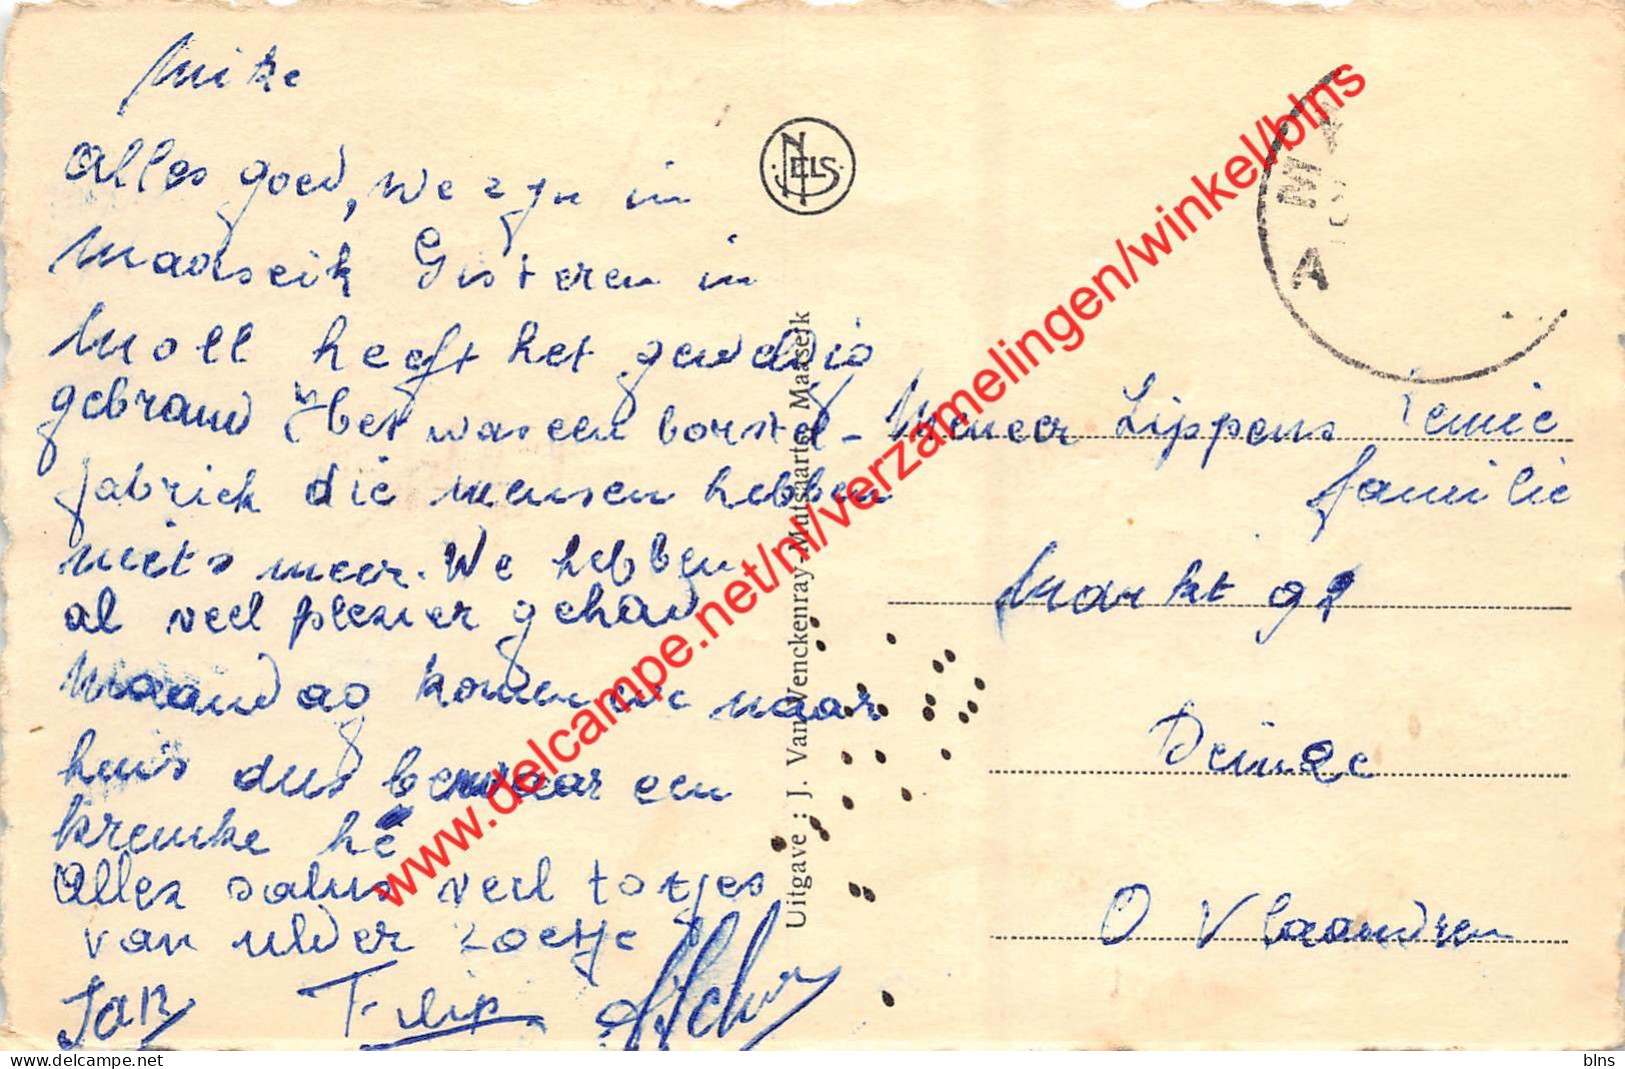 Mike
Alles goed, we zijn in
Maaseik Gisteren in
Moll heeft het geweldig
gebrand het was een borstel-
fabriek die mensen hebben
niets meer. We hebben
al veel plezier gehad
Maandag komen we naar
huis dus bewaar een
kremke hé
Alles salus veel totjes
van ulder zoetje
Jan Filip
NELS
Uitgave : J. Van Venckenray-Mutsaarts, Maaseik
A MA
Meneer Lippens
familie
Markt 92
Deinze
O Vlaandren
www.delcampe.net/nl/verzamelingen/winkel/blns
www.delcampe.net
blns